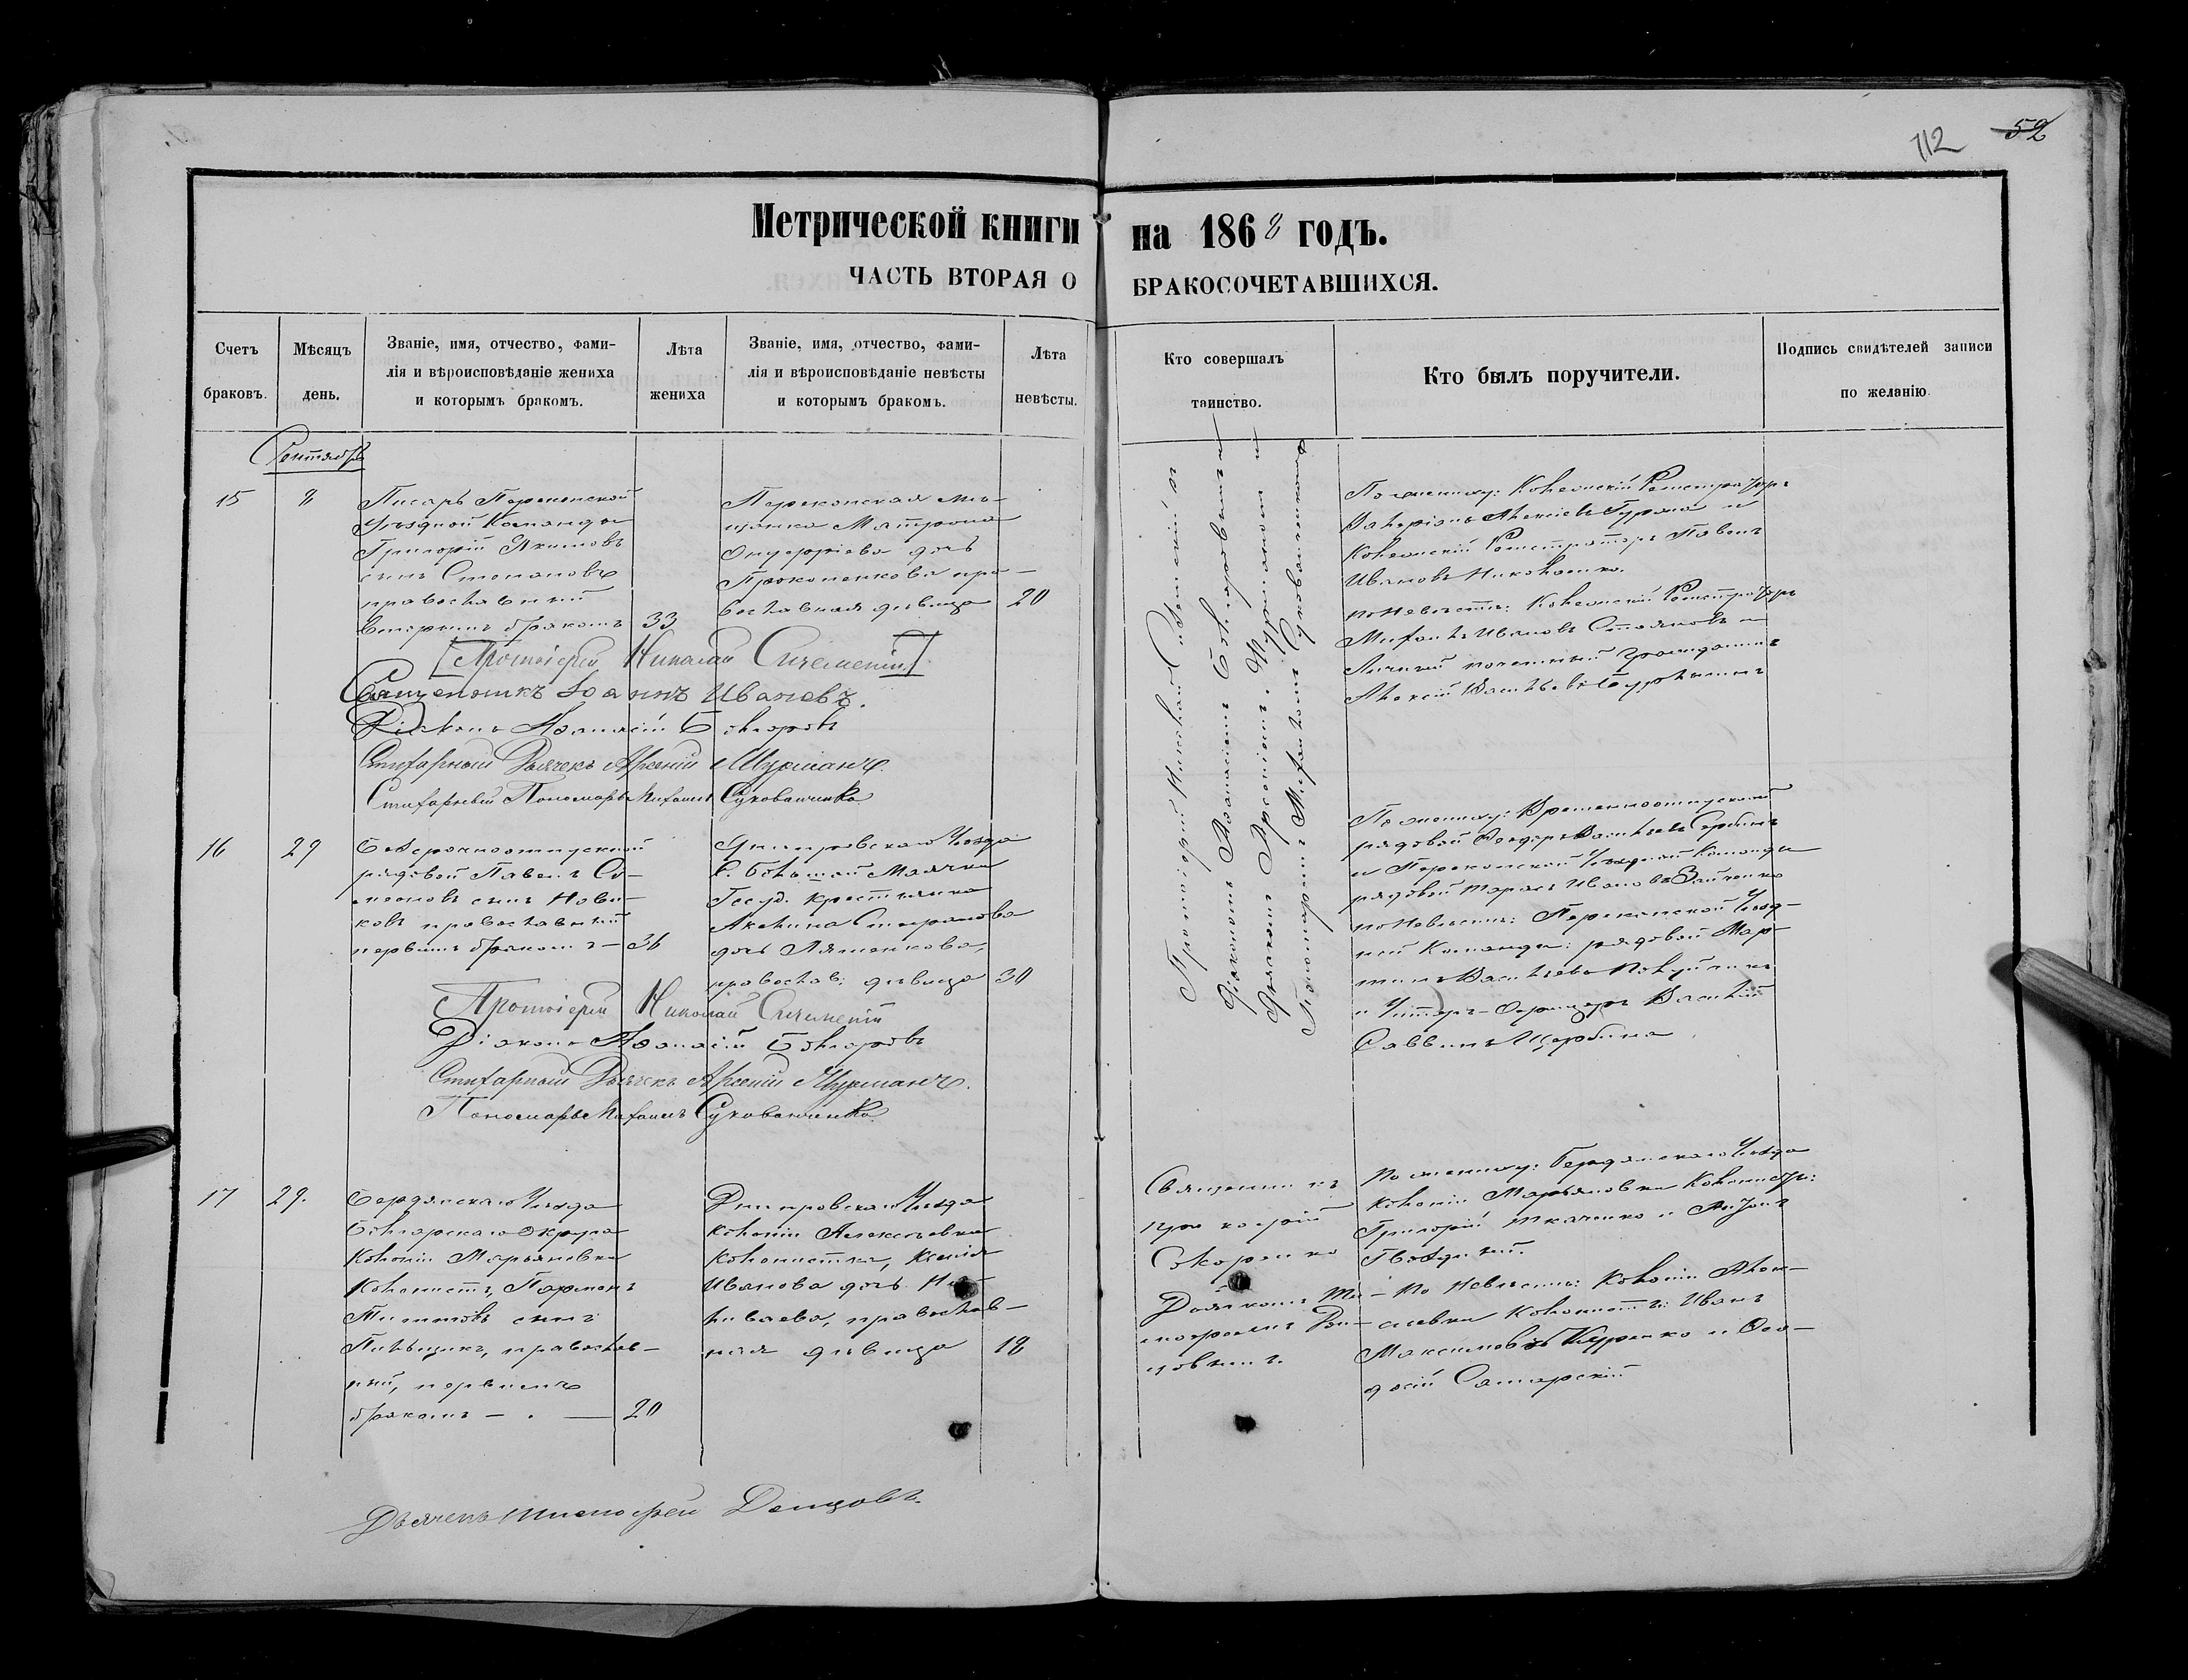 112 52
Метрической книги на 1868 годъ.
ЧАСТЬ ВТОРАЯ О БРАКОСОЧЕТАВШИХСЯ.
Счетъ браковъ.
Мѣсяцъ день.
Званіе, имя, отчество, фами-
лія и вѣроисповѣданіе жениха
и которымъ бракомъ.
Лѣта жениха
Званіе, имя, отчество, фами-
лія и вѣроисповѣданіе невѣсты
и которымъ бракомъ.
Лѣта невѣсты.
Кто совершалъ
таинство.
Кто былъ поручители.
Подпись свидѣтелей записи
по желанію
Сентябрь
15
8
Писарь Перекопской
Уѣздной Команды
Григорій Якимовъ
сынъ Степановъ
православный
вторымъ бракомъ
33
Перекопская мѣ-
щанка Матрона
Онуфріева дочь
Прокопенкова пра-
вославная дѣвица
20
Протоіерей Николай
Діаконъ Аѳанасіи Болгаровъ
Дьячекъ Арсеніи Мурманъ и
Пономарь Михаилъ Суковаченко
По жениху: Колежскій Регистраторъ
Валеріанъ Алексіевъ и
Колежскій Регистраторъ Павелъ
Ивановъ Николаенко.
по Невѣстѣ: Колежскій Регистраторъ
Михаилъ Ивановъ Стояновъ и
Личный почетный гражданинъ
Алексій Васильевъ
Протоіерей Николай
Священникъ Іоаннъ Ивановъ.
Діаконъ Аѳанасій Болгаровъ
Стихарный Дьячекъ Арсеній Мурманъ.
Стихарный Пономарь Михаилъ Суковаченко
16
29
Безсрочноотпускной
рядовой Павелъ Си-
меоновъ сынъ Нови-
ковъ православный
первымъ бракомъ —
36
Днѣпровскаго Уѣзда
с. Большой Маячки
Госуд. крестьянка
Акилина Стефанова
дочь Ляшенкова,
правосла: дѣвица
30
По жениху: Временноотпускной
рядовой Ѳеодоръ Васильевъ Сербинъ
и Перекопской Уѣздной Команды
рядовой Тарасъ Ивановъ Зайченко
по Невѣстѣ: Перекопской Уѣзд-
ной Команды: рядовой Мар-
тинъ Васильевъ
и Унтеръ-Офицеръ Василій
Саввинъ Щербина
Протоіерей Николай
Діаконъ Аѳанасій Болгаровъ
Стихарный Дьячекъ Арсеній Мурманъ.
Пономарь Михаилъ Суковаченко
17
29.
Бердянскаго Уѣзда
Болгарскаго Округа
Колоніи Марьяновки
Колонистъ, Парменъ
Титовъ сынъ
Пильщикъ, православ-
ный, первымъ
бракомъ — . —
20
Днѣпровскаго Уѣзда
колоніи Алексѣевки
колонистка, Ксенія
Иванова дочь
ливаева, православ-
ная дѣвица
18
Священникъ
Григорій
Скоренко
Дьячкомъ Ти-
моѳеемъ Дон-
цовымъ.
По жениху: Бердянскаго Уѣзда
колоніи Марьяновки Колонисты:
Григорій Ткаченко и Антонъ
Гвоздикій.
По Невѣстѣ: колоніи Алек-
сѣевки Колонисты: Иванъ
Максимовъ Куренко и Ѳео-
досій Самарскій
Дьячекъ Тимоѳей Донцовъ.